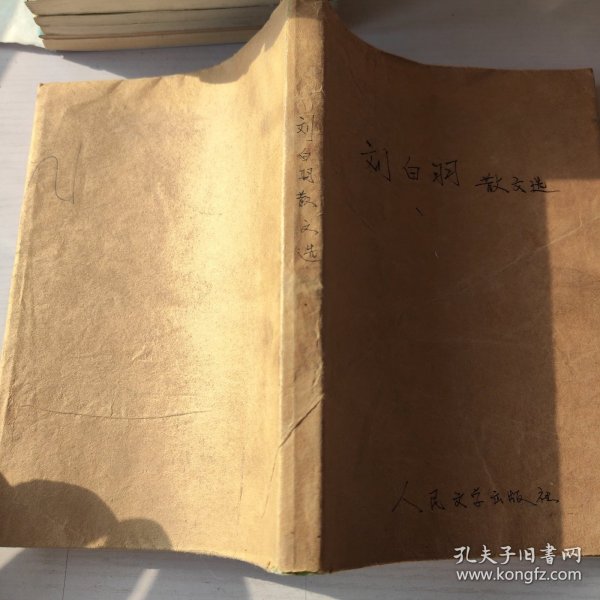 刘白羽散文选
刘白羽 散文选
人民文学出版社
孔夫子旧书网
www.kongfz.com